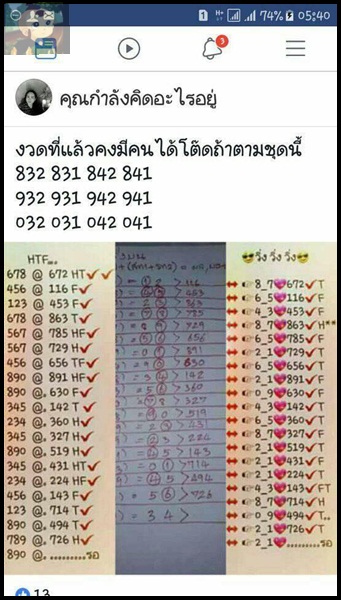 74% 05:40
3
คุณกำลังคิดอะไรอยู่
งวดที่แล้วคงมีคนได้โต๊ดถ้าตามชุดนี้
832 831 842 841
932 931 942 941
032 031 042 041
HTF...
678 @ 672 HT✓✓
456 @ 116 F✓
123 @ 453 F✓
678 @ 863 T✓
567 @ 785 HF✓
567 @ 729 H✓
456 @ 656 TF✓
890 @ 891 HF✓
890 @. 630 F✓
345 @. 142 T✓
234 @. 360 H✓
345 @. 327 H✓
890 @ 519 H✓
345 @. 431 HT✓
234 @ 224 HF✓
456 @ 143 F✓
123 @. 714 T✓
890 @. 494 T✓
789 @. 726 H✓
890 @. ..........รอ
> 116
> 453
> 785
> 729
> 656
> 891
> 630
3 4 > 142
5 6 > 360
> 327
> 519
> 431
2 3 > 224
4 5 > 143
0 1 > 714
4 5 > 494
5 6 > 726
= 3 4 >
😎วิ่ง วิ่ง วิ่ง😎
8_7💗672✓T
6_5💗116✓F
4_3💗453✓F
8_7💗863✓H**
6_5💗785✓F
2_1💗729✓T
6_5💗656✓T
2_1💗891✓F
0_9💗630✓F
4_3💗142✓T
6_5💗360✓T
8_7💗327✓F
2_1💗519✓T
2_1💗431✓F
2_1💗224✓T
4_3💗143✓FT
8_7💗714✓H
0_9💗494✓T..
2_1💗726✓T
2_1💗..........รอ
13